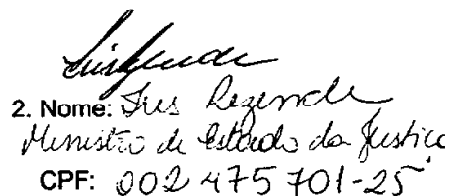 2. Nome: Iris Rezende
Ministro de Estado da Justiça
CPF: 002 475 701-25